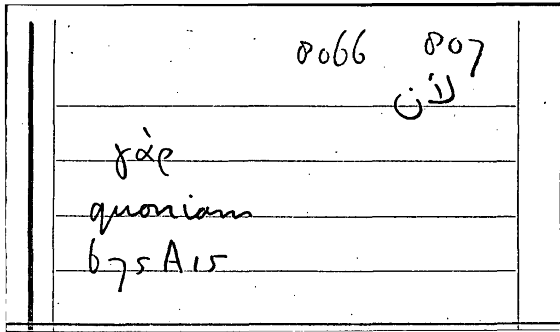 8066 807
لأن
γὰρ
quoniam
675 A 15